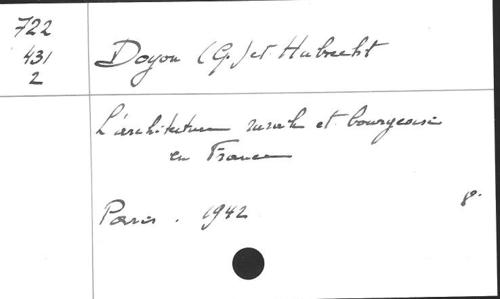 722
431
2
Doyon (G.) et Hubrecht
L'architecture rurale et bourgeoise
en France
Paris. 1942
8°